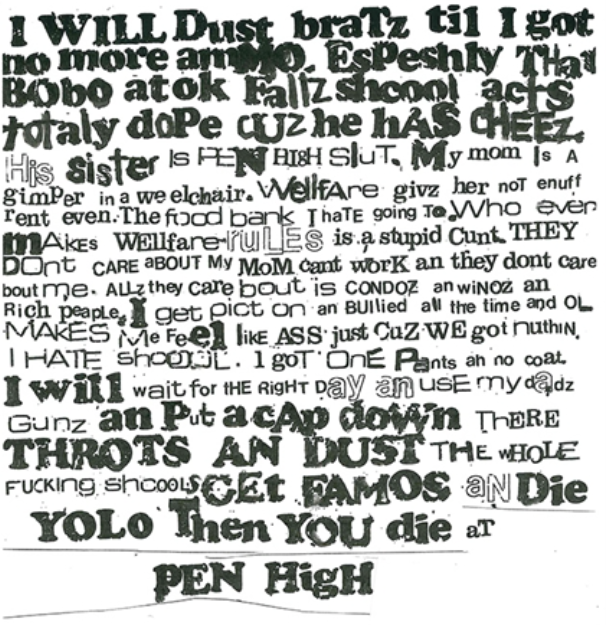 I WILL Dust braTz til I got
no more amMO. EsPeshly THat
BObo at ok FallZ shcool actS
totaly doPe cUZ he hAS CHEEZ.
His sister Is PEN HIGH SluT. My mom Is A
gimPer in a we elchair. WellfAre givz her noT enuff
rent even. The food bank I haTE going To. Who ever
mAkes WEllfare ruLES is a stupid Cunt. THEY
DOnt CARE aBOUT My MoM cant worK an they dont care
bout me. ALLz they CaRe bout is CONDOZ an wiNOZ an
Rich peaple. I get pict on an BUllied all the time and OL
MAKES Me Feel lIKE ASS just CuZ WE got nuthiN.
I HATE shcoOOL. I goT OnE Pants an no coat.
I will wait for tHE RigHT Day an usE my dadz
Gunz an Put a cAp down ThERE
THROTS AN DUST THE wHOLE
FUCKing shcoolS GEt FAMOS aN Die
YOLO Then YOU die aT
PEN HigH